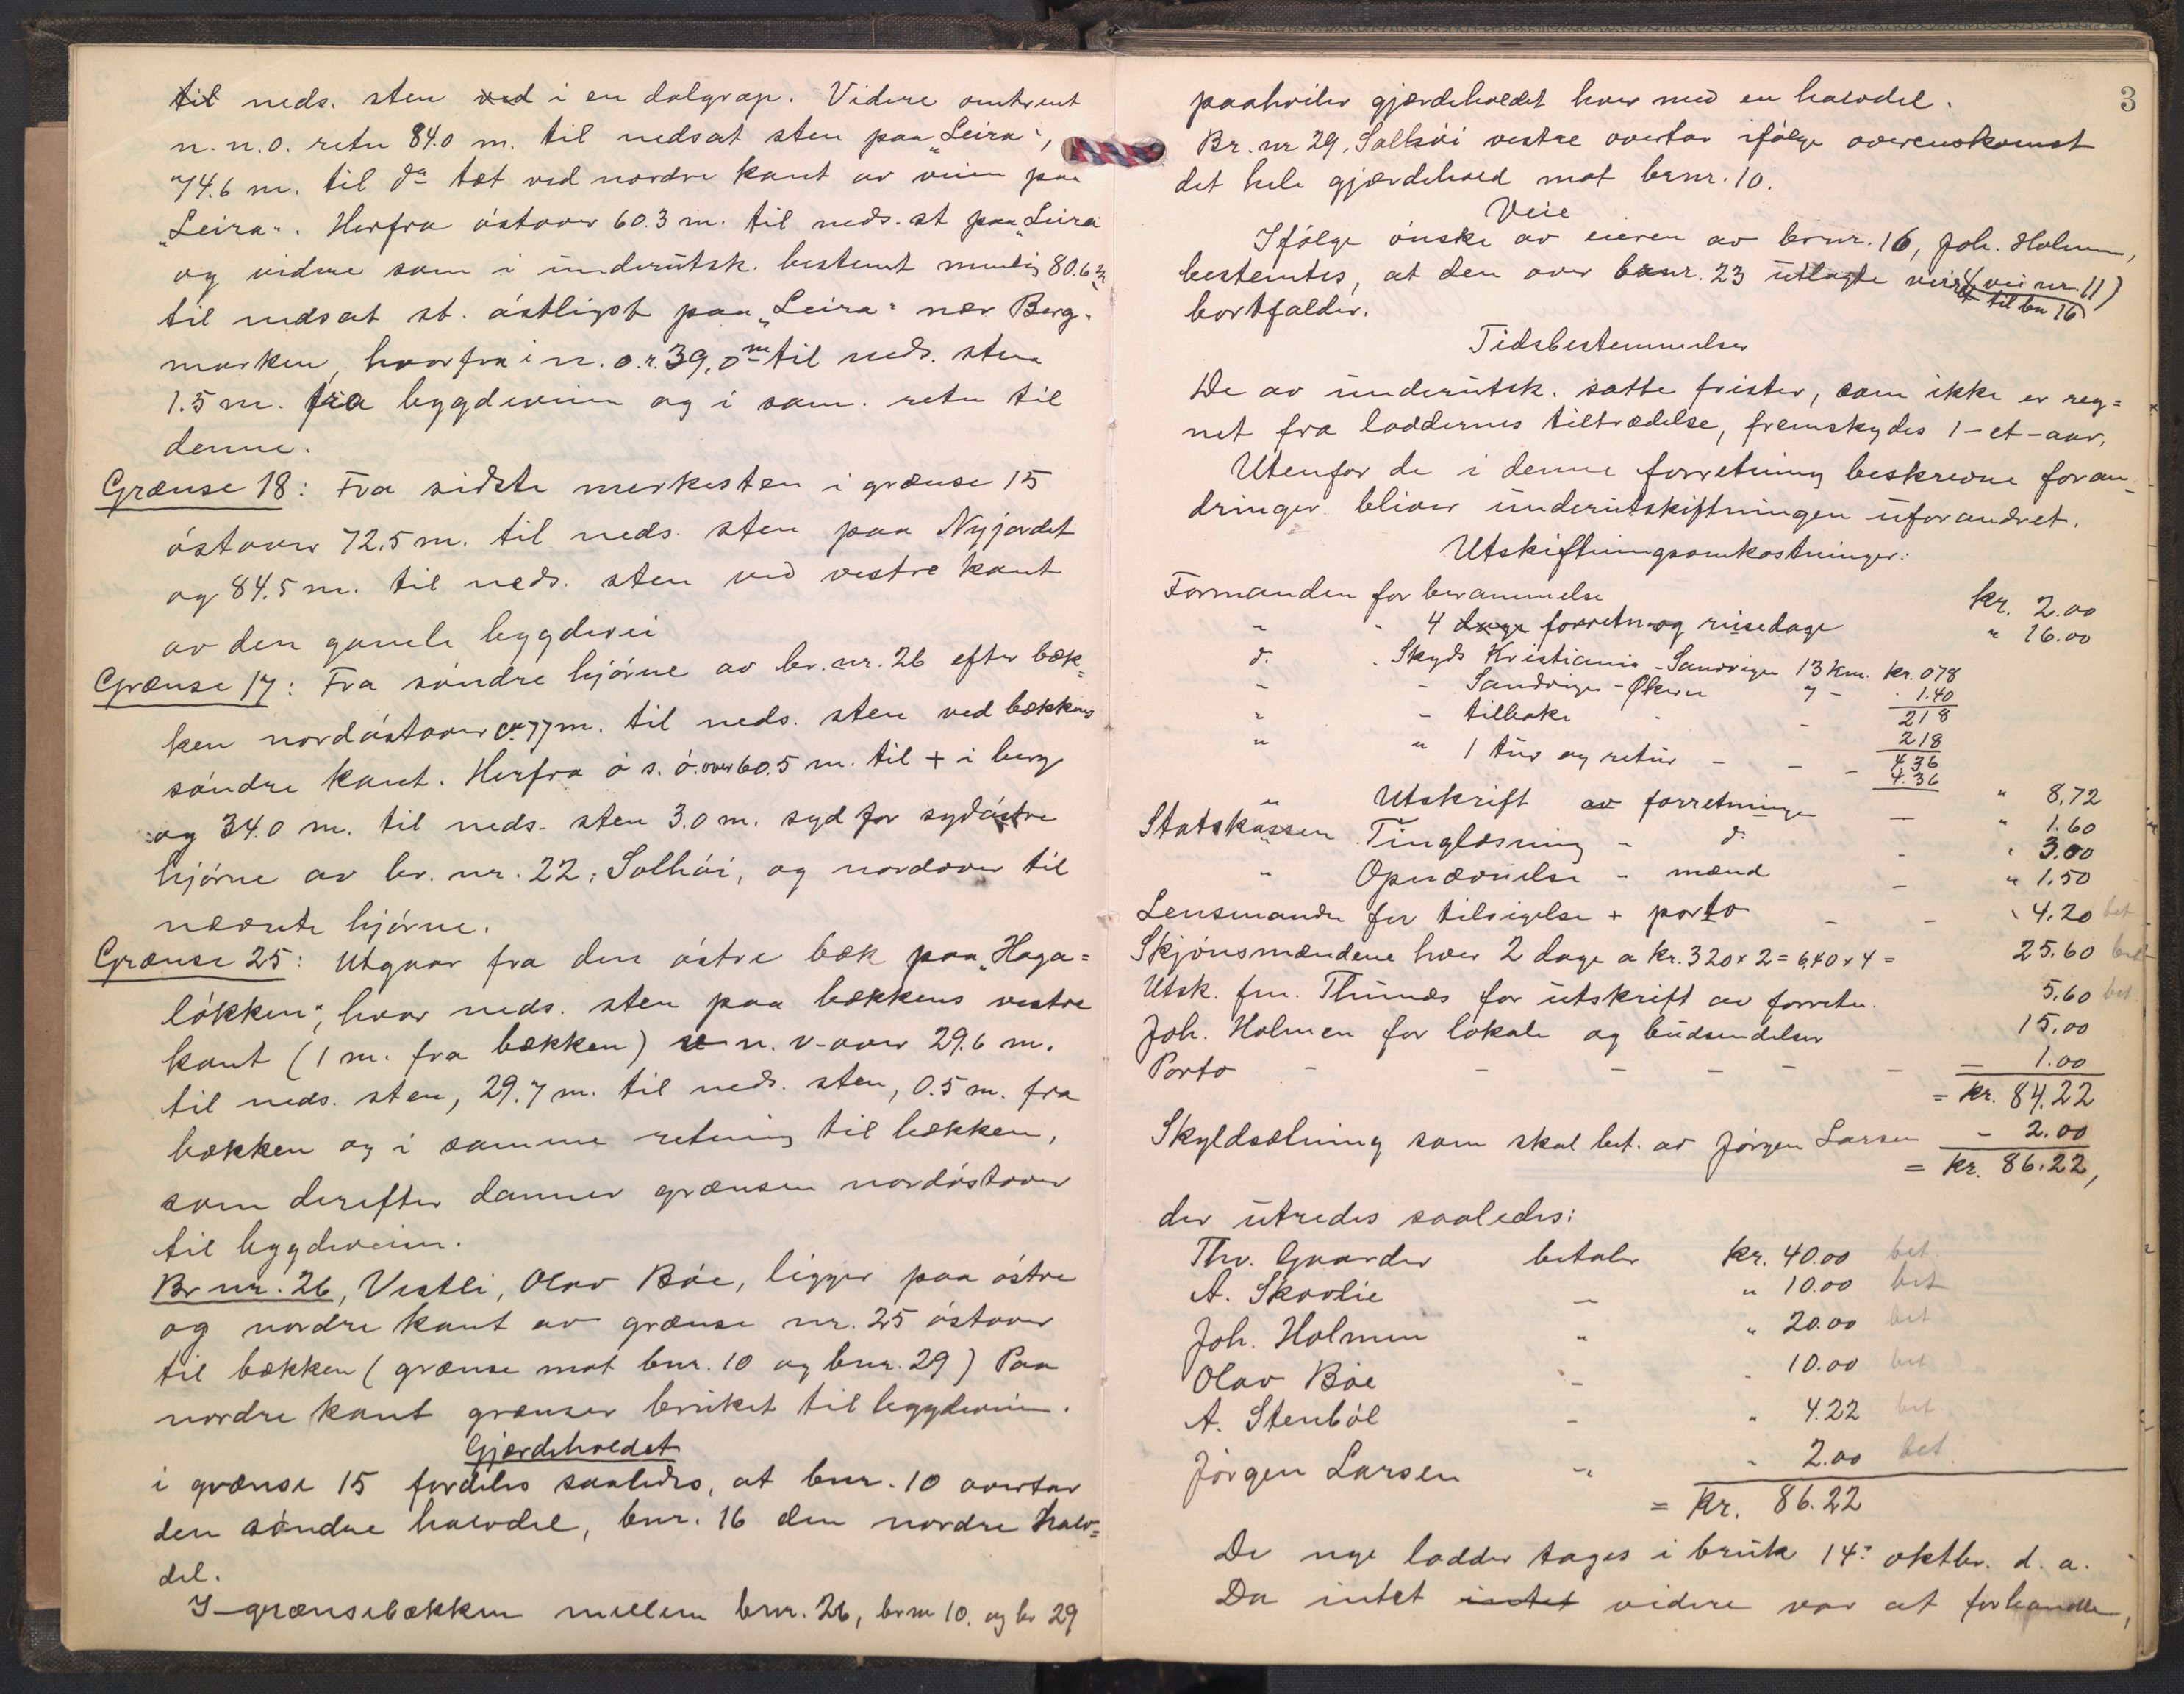 til neds. sten ved i en dalgrop. Videre omtrent
n.n.o. retn 84.0 m. til nedsat sten paa „Leira",
74.6 m. til do tæt ved nordre kant av veien paa
„Leira". Herfra østover 60.3 m. til neds. st paa „Leira
og videre som i underutsk. bestemt nemlig 80.6 m
til nedsat st. østligst paa „Leira" nær Berg-
marken, hvorfra i n.o.r. 39,0 m til neds. sten
1.5 m. fra bygdeveien og i sam. retn til
denne.
Grænse 18: Fra sidste merkesten i grænse 15
østover 72.5 m. til neds. sten paa Nyjordet
og 84.5 m. til neds. sten ved vestre kant
av den gamle bygdevei
Grænse 17: Fra søndre hjørne av br. nr. 26 efter bæk-
ken nordøstover ca 77 m. til neds. sten ved bækkens
søndre kant. Herfra ø s. ø. over 60.5 m. til + i berg
og 34.0 m. til neds. sten 3.0 m. syd for sydøstre
hjørne av br. nr. 22, Solhøi, og nordover til
nævnte hjørne.
Grænse 25: Utgaar fra den østre bæk paa „Haga=
løkken", hvor neds. sten paa bækkens vestre
kant (1 m. fra bækken) n. v-over 29.6 m.
til neds. sten, 29.7 m. til neds. sten, 0.5 m. fra
bækken og i samme retning til bækken,
som derefter danner grænsen nordøstover
til bygdeveien.
Br nr. 26, Vestli, Olav Bøe, ligger paa østre
og nordre kant av grænse nr. 25 østover
til bækken (grænse mot bnr. 10 og bnr. 29) Paa
nordre kant grænser bruket til bygdeveien.
Gjærdeholdet
i grænse 15 fordeles saaledes, at bnr. 10 overtar
den søndre halvdel, bnr. 16 den nordre halv=
del.
I grænsebækken mellem brnr. 26, brnr 10. og br 29
3
paahviler gjærdeholdet hver med en halvdel.
Br. nr 29, Solhøi vestre overtar ifølge overenskomst
det hele gjærdehold mot brnr. 10.
Veie
Ifølge ønske av eieren av brnr. 16, Joh. Holmen,
bestemtes, at den over brnr. 23 utlagte veiret (vei nr. 11)
til bn 16
bortfalder.
Tidsbestemmelser
De av underutsk. satte frister, som ikke er reg=
net fra loddernes tiltrædelse, fremskydes 1-et-aar.
Utenfor de i denne forretning beskrevne foran-
dringer bliver underutskiftningen uforandret.
Utskiftningsomkostninger:
Formanden for berammelse kr. 2.00
" " 4 dage forretn. og reisedage " 16.00
d. " Skyds Kristiania - Sandviken 13 km. kr. 078
" - Sandviken - Økern 7 - " 1.40
218
" - tilbake - - 218
4.36
" " 1 tur og retur - - - 4.36
" 8.72
" Utskrift av forretningen - " 1.60
Statskassen Tinglæsning " d. - " 3.00
" Opnævnelse " mænd - " 1.50
Lensmanden for tilsigelse + porto - - " 4.20 bet
Skjønsmændene hver 2 dage a kr. 320 x 2 = 6,40 x 4 = 25.60 bet
Utsk. fm. Thunæs for utskrift av forretn. 5.60 bet.
Joh. Holmen for lokale og budsendelser 15.00
Porto - - - - - - 1.00
= kr. 84.22
Skyldsætning som skal bet. av Jørgen Larsen - 2.00
= kr. 86.22,
der utredes saaledes:
Thv. Gaarder betaler kr. 40.00 bet.
A. Skovlie - " 10.00 bet
Joh. Holmen " " 20.00 bet
Olav Bøe - " 10.00 bet
A. Stenbøl - " 4.22 bet.
Jørgen Larsen " " 2.00 bet.
= Kr. 86.22
De nye lodder tages i bruk 14: oktbr. d. a.
Da intet intet videre var at forhandle,